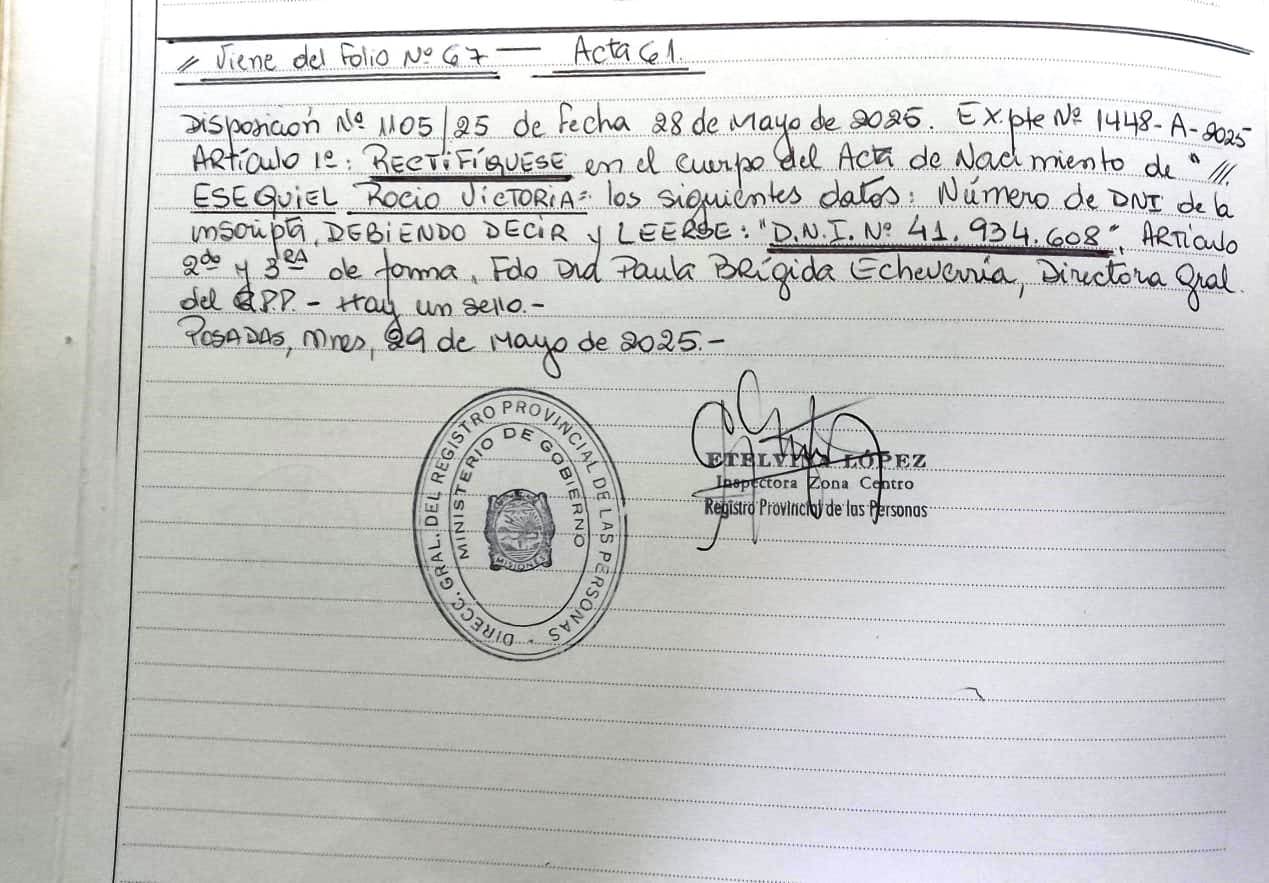 // Viene del Folio Nº 67 — Acta 61.
Disposición Nº 1105/25 de fecha 28 de Mayo de 2025. Expte Nº 1448-A-2025
ARTículo 1º: RECTIFÍQUESE en el cuerpo del Acta de Nacimiento de "///.
ESEQUIEL Rocio VicTORIA": los siguientes datos: Número de DNI de la
inscripta, DEBIENDO DECIR y LEERSE: "D.N.I. Nº 41.934.608". ARTículo
2do y 3RA de forma, Fdo Dra Paula BRígida Echeverría, Directora Gral.
del R.P.P. - Hay un sello.-
POSADAS, Mnes, 29 de Mayo de 2025.-
DIRECC. GRAL. DEL REGISTRO PROVINCIAL DE LAS PERSONAS
MINISTERIO DE GOBIERNO
MISIONES
ETELVINA LÓPEZ
Inspectora Zona Centro
Registro Provincial de las Personas